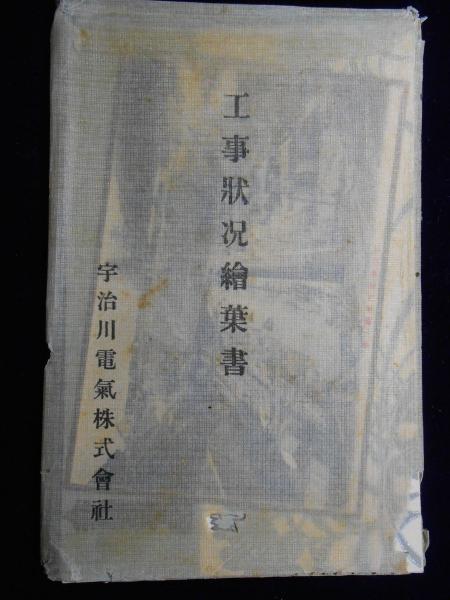 工事狀况繪葉書
宇治川電氣株式會社